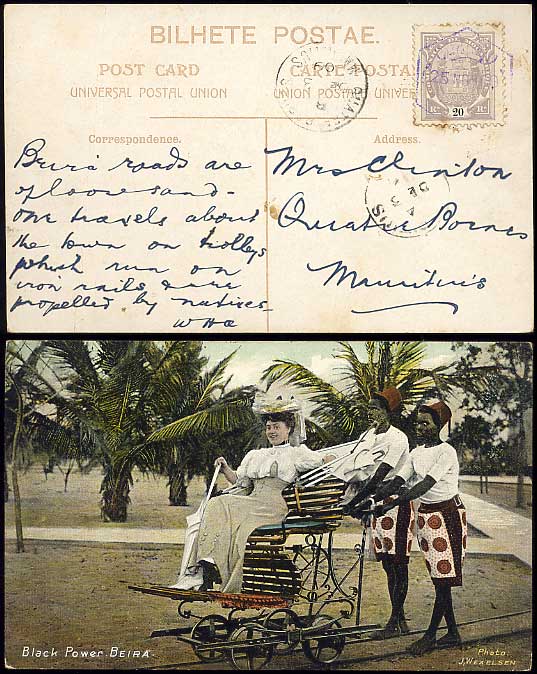 BILHETE POSTAE.
POST CARD
UNIVERSAL POSTAL UNION
CARTE POSTALE
UNION POSTALE UNIVERSELLE
Rs 20 Rs
25
Correspondence.
Beira roads are
of loose sand -
one travels about
the town on trolleys
which run on
iron rails & are
propelled by natives -
Address.
Mrs Clinton
Quatre Bornes
Mauritius
DE
Black Power. BEIRA.
Photo.
J. WEXELSEN